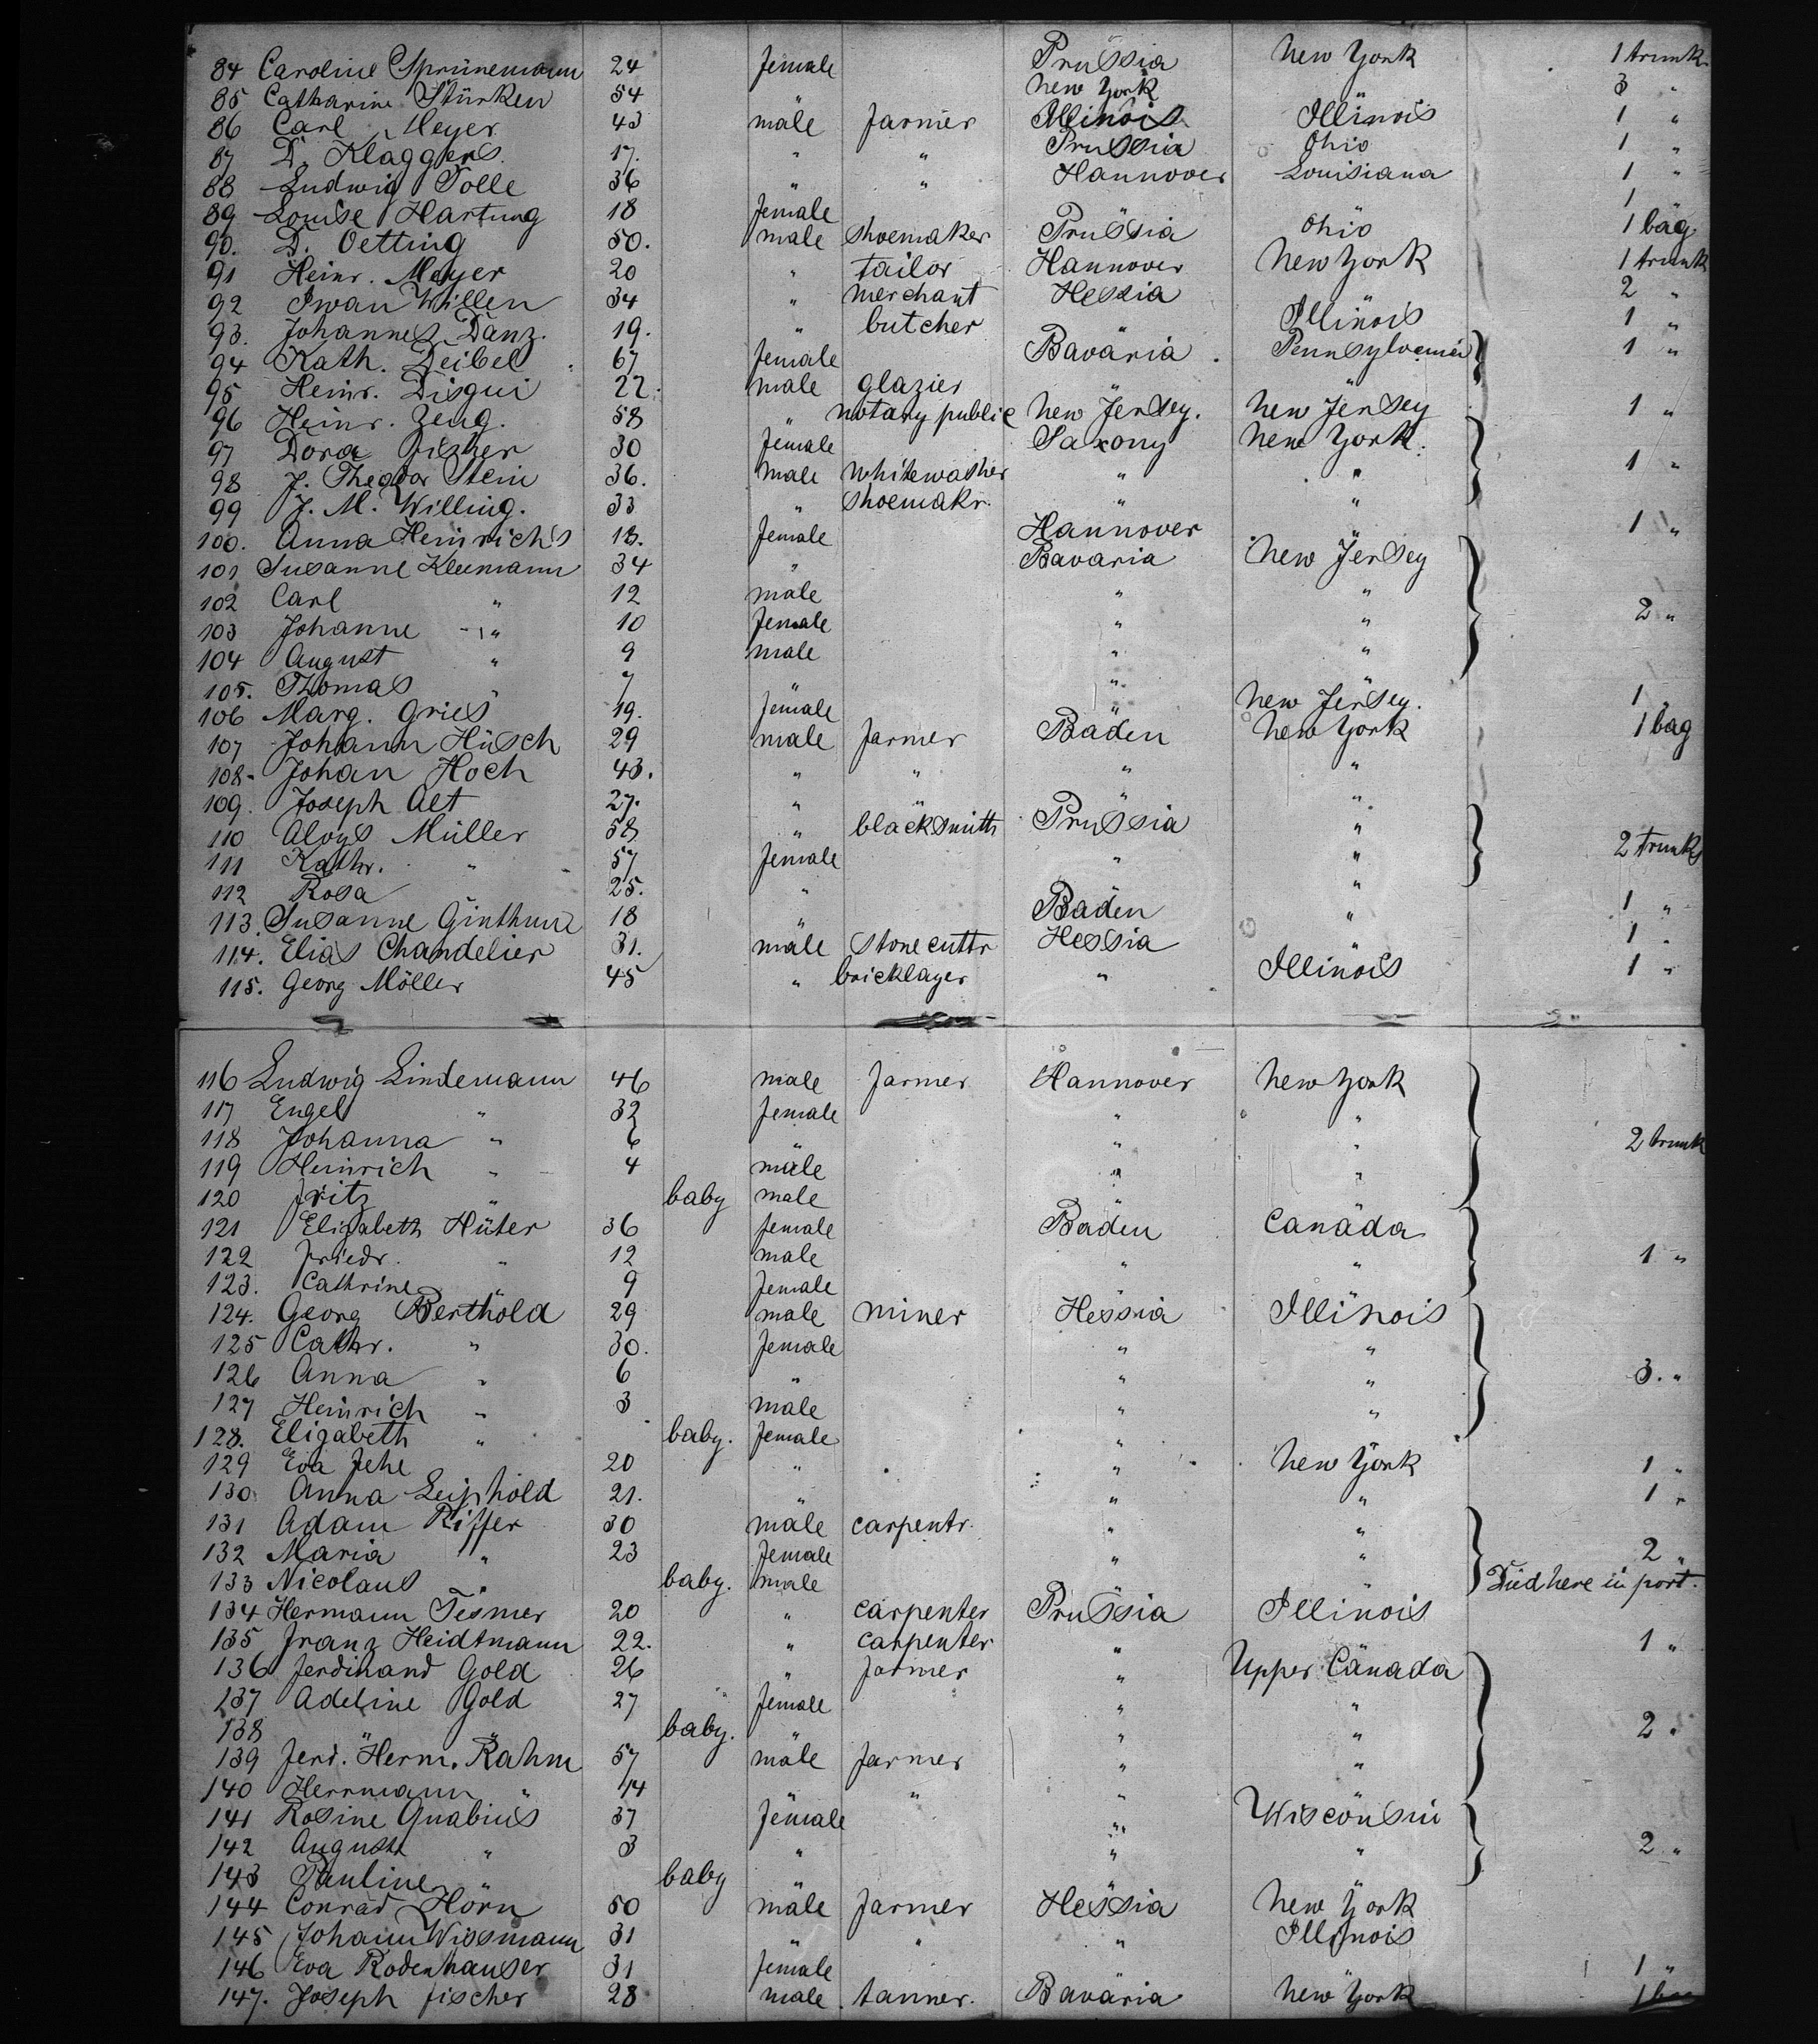 84 Caroline Sprünemann 24 female Prussia New York 1 trunk
85 Catharine Stürken 54 " New York " 3 "
86 Carl Meyer 43 male farmer Illinois Illinois 1 "
87 D. Klaggers 17. " " Prussia Ohio 1 "
88 Ludwig Tolle 36 " " Hannover Louisiana 1 "
89 Louise Hartung 18 female " " 1 "
90. D. Oetting 50. male shoemaker Prussia Ohio 1 bag
91 Heinr. Meyer 20 " tailor Hannover New York 1 trunk
92 Iwan Willen 34 " merchant Hessia " 2 "
93. Johannes Danz. 19. " butcher " Illinois 1 "
94 Kath. Deibel 67 female Bavaria Pennsylvania 1 "
95 Heinr. Disqui 22. male glazier " "
96 Heinr. Zeug. 58 " notary public New Jersey. New Jersey 1 "
97 Dora Fischer 30 female Saxony New York.
98 J. Theodor Stein 36. male whitewasher " " 1 "
99 J. M. Willing. 33 " shoemakr. " "
100. Anna Heinrichs 18. female Hannover " 1 "
101 Susanne Kleemann 34 " Bavaria New Jersey
102 Carl " 12 male " "
103 Johanne " 10 female " " 2 "
104 August " 9 male " "
105. Thomas " 7 " " "
106 Marg. Gries 19. female " New Jersey. 1 "
107 Johann Hüsch 29 male farmer Baden New York 1 bag
108. Johan Hoch 43. " " " "
109. Joseph Alt 27. " " " "
110 Aloys Müller 58 " blacksmith Prussia "
111 Kathr. " 57 female " " 2 trunks
112 Rosa " 25. " " "
113. Susanne Ginthum 18 " Baden " 1 "
114. Elias Chandelier 31. male stonecuttr Hessia " 1 "
115. Georg Möller 45 " bricklayer " Illinois 1 "
116 Ludwig Lindemann 46 male farmer Hannover New York
117 Engel " 32 female " "
118 Johanna " 6 " " " 2 trunk
119 Heinrich " 4 male " "
120 Fritz " baby male " "
121 Elizabeth Hüter 36 female Baden Canada
122 Friedr. " 12 male " " 1 "
123. Cathrine " 9 female " "
124. Georg Berthold 29 male miner Hessia Illinois
125 Cathr. " 30. female " "
126 Anna " 6 " " " 3. "
127 Heinrich " 3 male " "
128. Elizabeth " baby. female " "
129 Eva Jehe 20 " " New York 1 "
130 Anna Leiphold 21. " " " 1 "
131 Adam Riffer 30 male carpentr. " "
132 Maria " 23 female " " 2 "
133 Nicolaus " baby. male " " Died here in port.
134 Hermann Tesmer 20 " carpenter Prussia Illinois
135 Franz Heidtmann 22. " carpenter " " 1 "
136 Ferdinand Gold 26 " farmer " Upper Canada
137 Adeline Gold 27 female " "
138 " " baby. " " " 2 "
139 Ferd. Herm. Rahm 57 male farmer " "
140 Herrmann " 14 " " " "
141 Rosine Gnabius 37 female " Wisconsin
142 August " 3 " " " 2 "
143 Pauline " baby " " "
144 Conrad Horn 50 male farmer Hessia New York
145 Johann Wissmann 31 " " " Illinois
146 Eva Rodenhauser 31 female " " 1 "
147. Joseph Fischer 28 male tanner. Bavaria New York 1